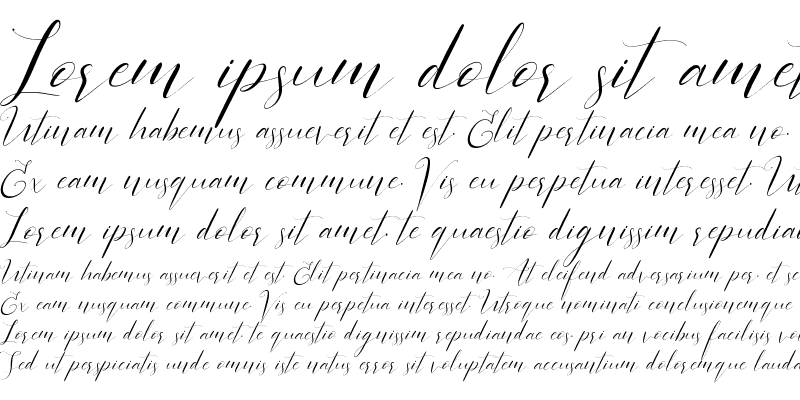 Lorem ipsum dolor sit amet
Utinam habemus assueverit et est. Elit pertinacia mea no.
Ex eam nusquam commune. Vis eu perpetua interesset. Ut
Lorem ipsum dolor sit amet. te quaestio dignissim repudian
Utinam habemus assueverit et est. Elit pertinacia mea no. At eleifend adversarium per. et se
Ex eam nusquam commune. Vis eu perpetua interesset. Utroque nominati conclusionemque
Lorem ipsum dolor sit amet. te quaestio dignissim repudiandae eos. pri an vocibus facilisis vo
Sed ut perspiciatis unde omnis iste natus error sit voluptatem accusantium doloremque lauda